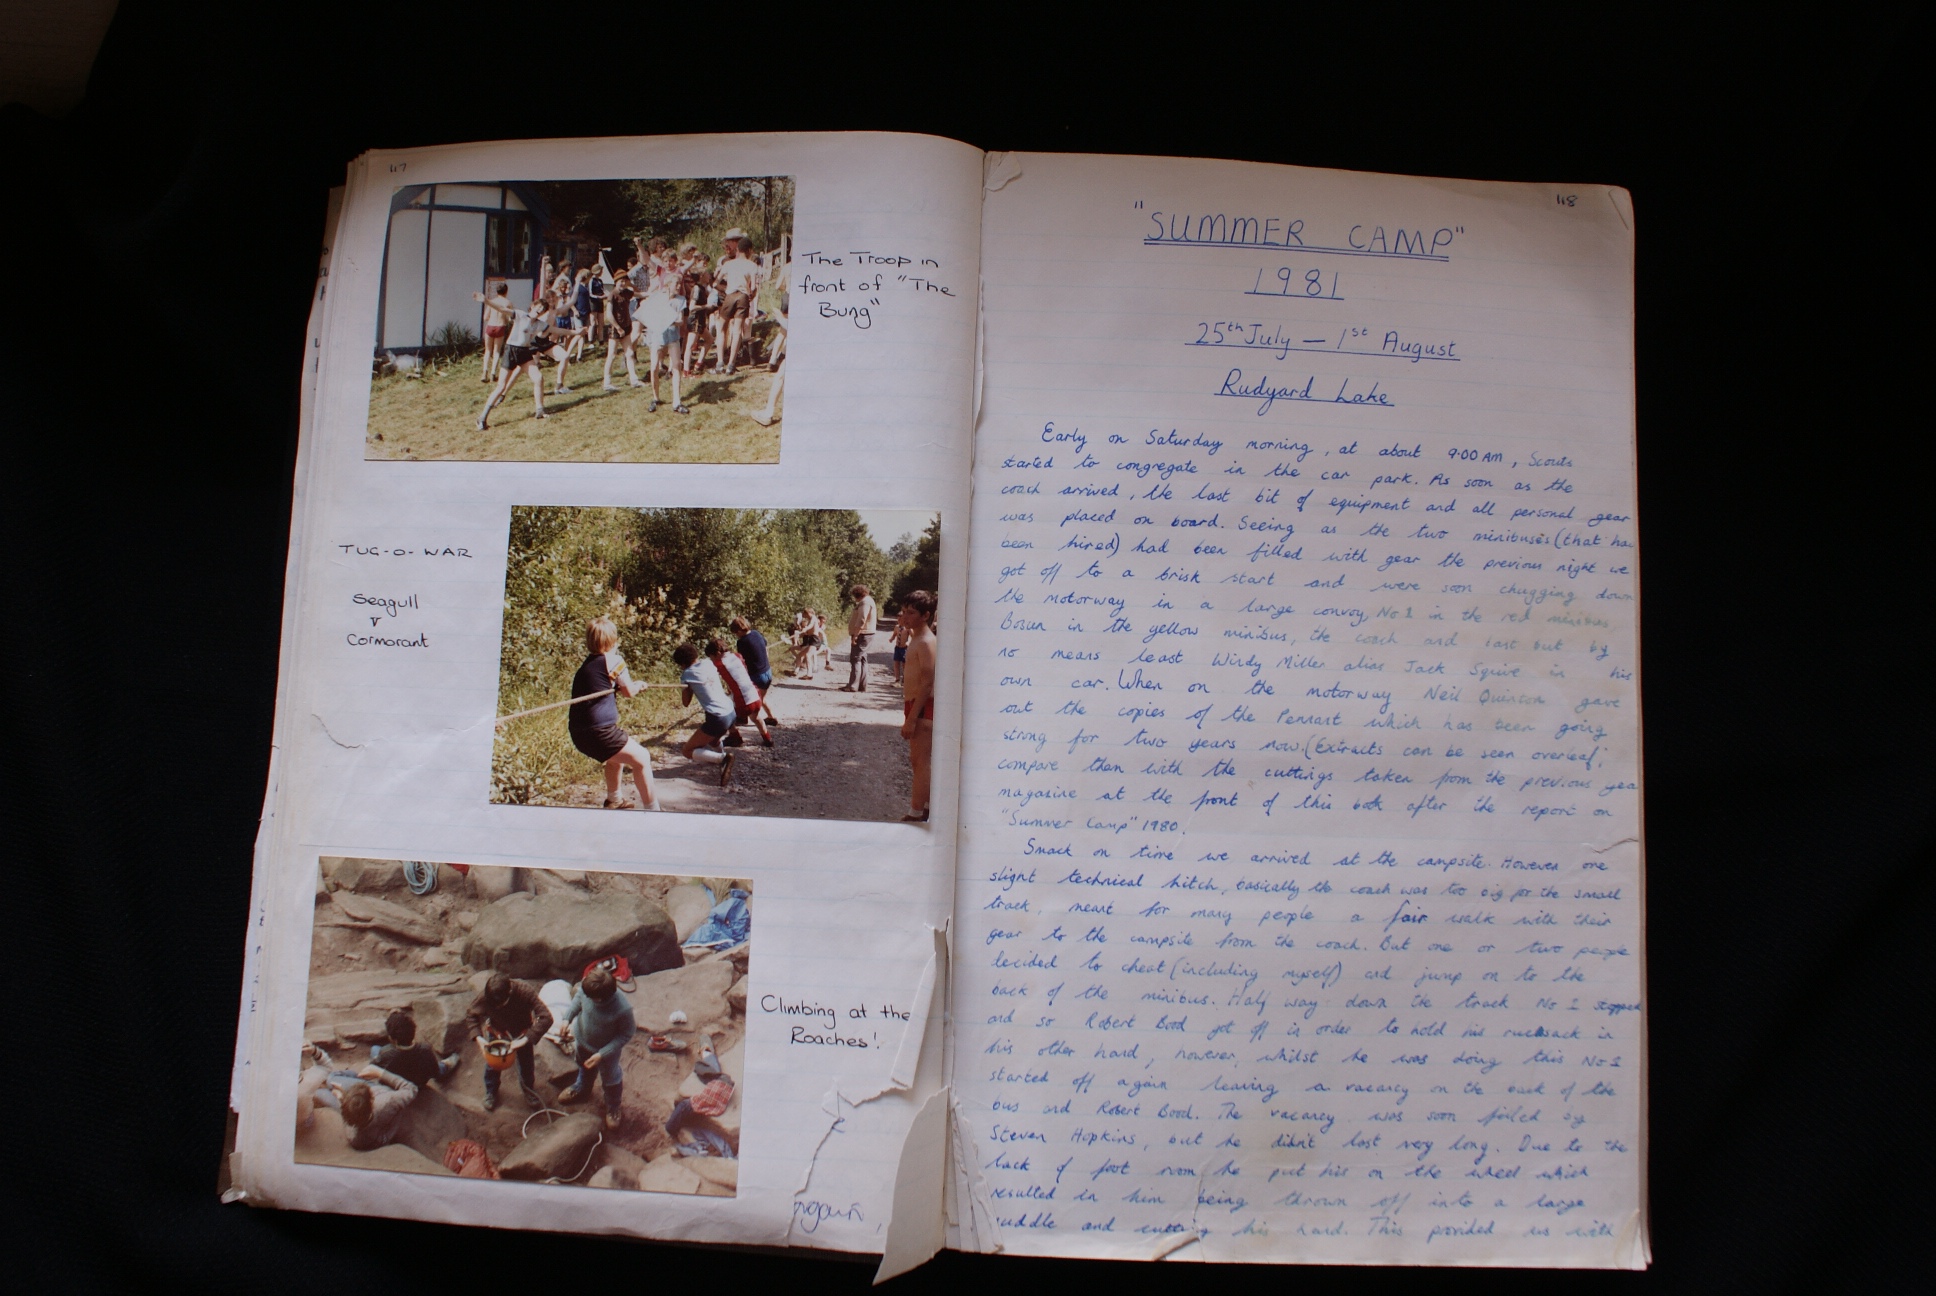 117
The Troop in
front of "The
Bung"
TUG-O-WAR
Seagull
v
Cormorant
Climbing at the
Roaches!
again,
118
"SUMMER CAMP"
1981
25th July - 1st August
Rudyard Lake
Early on Saturday morning, at about 9.00 AM, Scouts
started to congregate in the car park. As soon as the
coach arrived, the last bit of equipment and all personal gear
was placed on board. Seeing as the two minibuses (that had
been hired) had been filled with gear the previous night we
got off to a brisk start and were soon chugging down
the motorway in a large convoy, No 1 in the red minibus,
Bosun in the yellow minibus, the coach and last but by
no means least Windy Miller alias Jack Squire in his
own car. When on the motorway Neil Quinton gave
out the copies of the Pennant which has been going
strong for two years now. (Extracts can be seen overleaf;
compare them with the cuttings taken from the previous year
magazine at the front of this book after the report on
"Summer Camp" 1980.
Smack on time we arrived at the campsite. However one
slight technical hitch, basically the coach was too big for the small
track, meant for many people a fair walk with their
gear to the campsite from the coach. But one or two people
decided to cheat (including myself) and jump on to the
back of the minibus. Half way down the track No 1 stopped
and so Robert Bood got off in order to hold his rucksack in
his other hand, however, whilst he was doing this No 1
started off again leaving a vacancy on the back of the
bus and Robert Bood. The vacancy was soon filled by
Steven Hopkins, but he didn't last very long. Due to the
lack of foot room he put his on the wheel which
resulted in him being thrown off into a large
puddle and cutting his hand. This provided us with